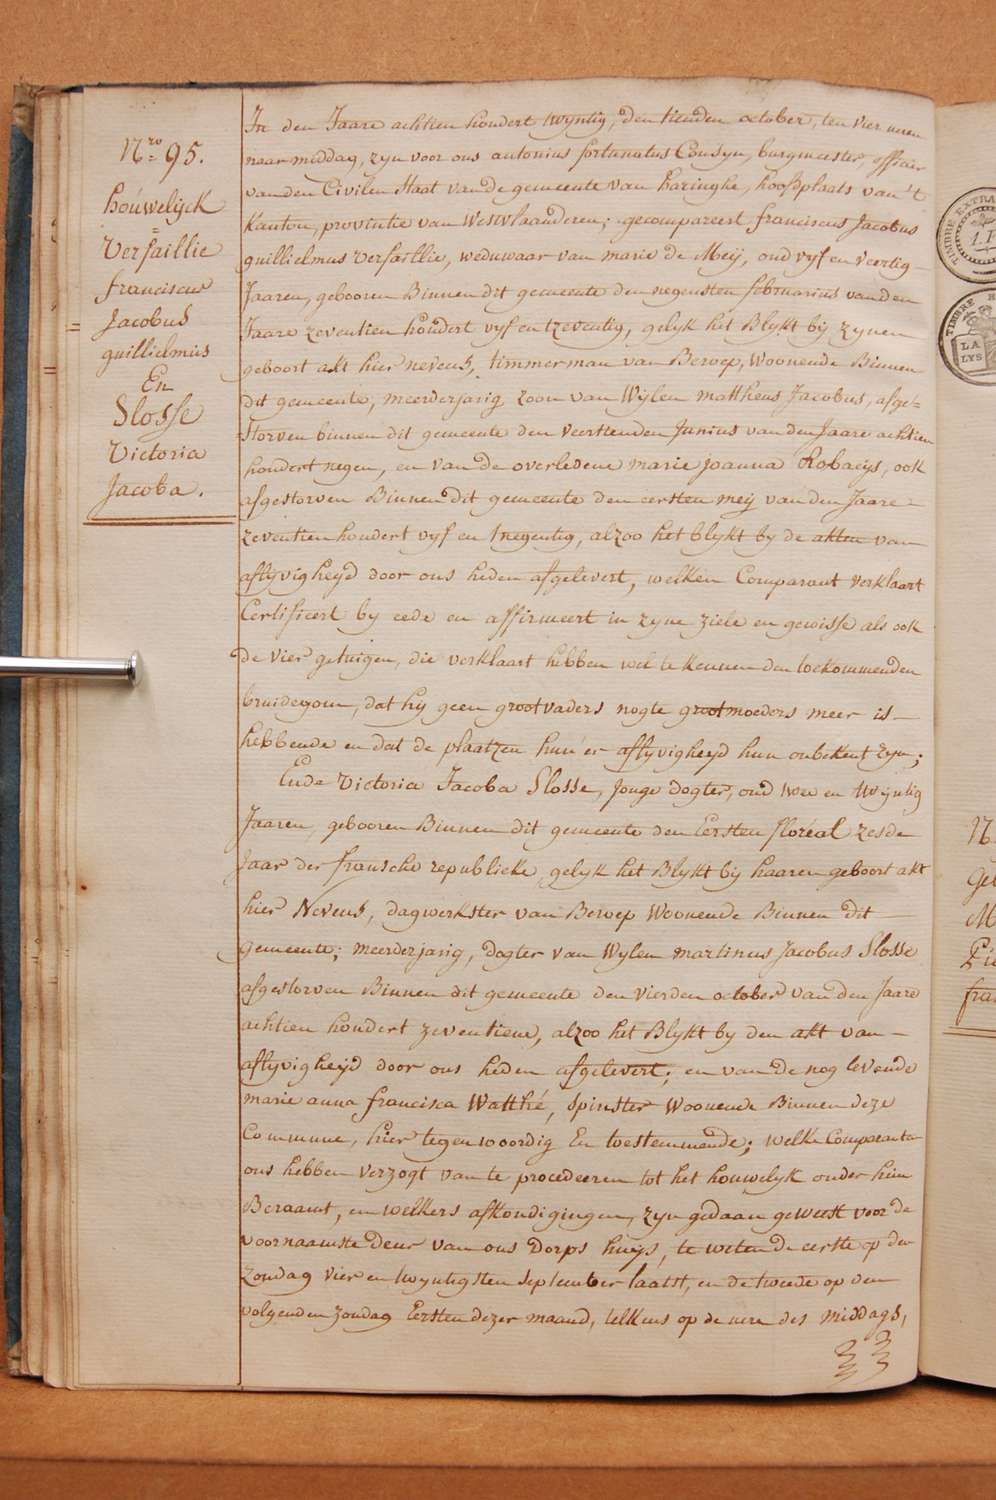 Nro 95.
houwelijck
Versaillie
franciscus
Jacobus
guillielmus
En
Slosse
Victoria
Jacoba.
In den Jaare achtien hondert twyntig, den tienden october, ten vier uren
naar middag, zyn voor ons antonius fortunatus Cousyn, burgmeester, officier
van den Civilen Staat van de gemeente van haringhe, hoofdplaats van 't
kanton, provintie van Westvlaanderen; gecompareert franciscus Jacobus
guillielmus Versaillie, weduwaar van marie de Meij, oud vyf en veertig
Jaaren, gebooren Binnen dit gemeente den negensten februarius van den
Jaare zeventien hondert vyf en tzeventig, gelyk het Blykt bij zynen
geboort akt hier nevens, timmerman van Beroep, Woonende Binnen
dit gemeente, meerderjarig zoon van Wylen mattheus Jacobus, afge-
storven binnen dit gemeente den veertienden Junius van den Jaare achtien
hondert negen, en van de overledene marie joanna Robaeys, ook
afgestorven Binnen dit gemeente den eersten meij van den Jaare
zeventien hondert vyf en tnegentig, alzoo het blykt by de akten van
aflyvigheyd door ons heden afgelevert, welken Comparant verklaart
Certifieert by eede en affirmeert in zyne ziele en gewisse als ook
de vier getuigen, die verklaart hebben wel te kennen den toekommenden
bruidegom, dat hij geen grootvaders nogte grootmoeders meer is
hebbende en dat de plaatzen hun'er aflyvigheyd hun onbekent zyn;
Ende Victoria Jacoba Slosse, Jonge dogter, oud twee en twyntig
Jaaren, gebooren Binnen dit gemeente den Eersten floréal zesde
Jaar der fransche republieke, gelyk het Blykt bij haaren geboort akt
hier Nevens, dagwerkster van Beroep Woonende Binnen dit
gemeente; meerderjarig, dogter van Wylen martinus Jacobus Slosse
afgestorven Binnen dit gemeente den vierden october van den Jaare
achtien hondert zeventiene, alzoo het Blykt by den akt van
aflyvigheyd door ons heden afgelevert; en van de nog levende
marie anna francisca Watthé, spinster Woonende Binnen deze
Commune, hier tegenwoordig En toestemmende; welke Comparanten
ons hebben verzogt van te procedeeren tot het houwelyk onder hun
Beraamt, en welkers afkondigingen, zyn gedaan geweest voor de
voornaamste deur van ons Dorps huys, te weten de eerste op den
zondag vier en twyntigsten September laatst, en de tweede op den
volgenden zondag Eersten dezer maand, telkens op de uere des middags,
TIMBRE EXTRA
1.F
TIMBRE R
LA
LYS
N
Ge
M
Pie
fra